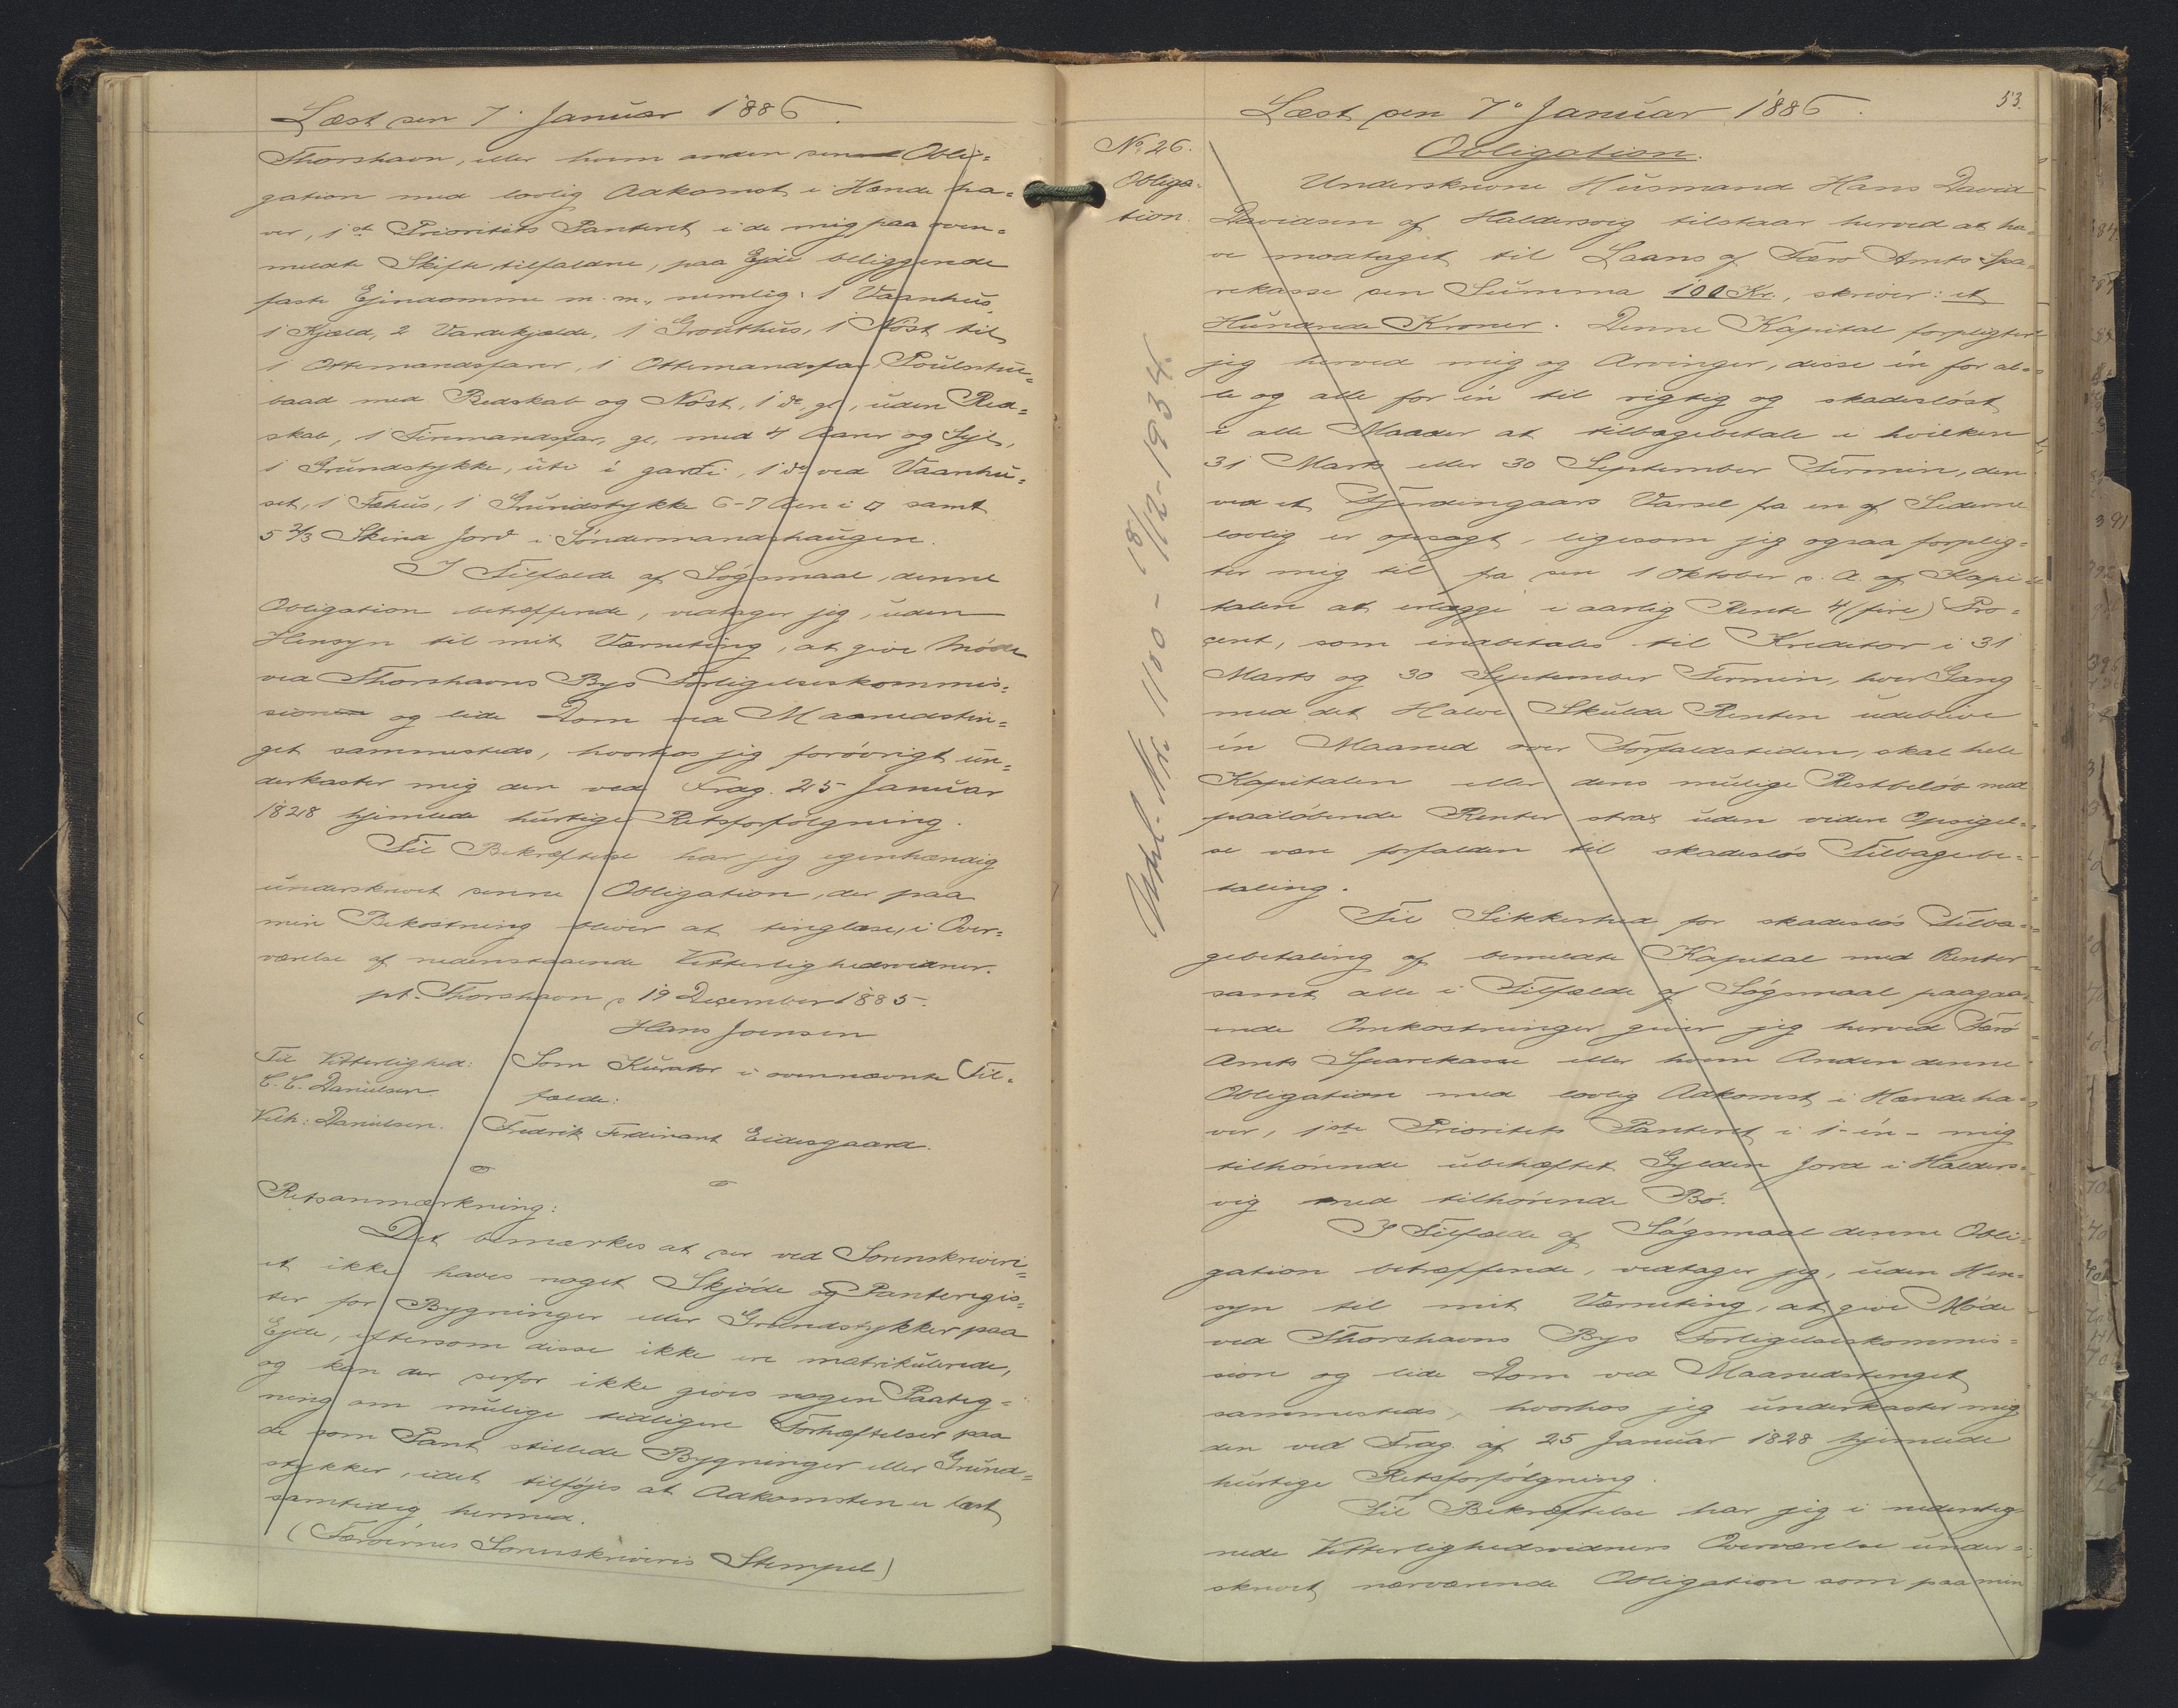 Læst den 7. Januar 1886.
Thorshavn, eller hvem anden denne Obli=
gation med lovlig Adkomst i Hænde ha=
ver, 1ste Prioritets Panteret i de mig paa oven=
meldte Skifte tilfaldne, paa Ejde beliggende
faste Ejendomme m.m., nemlig: 1 Vaanhus,
1 Kjeld, 2 Vardekjelde, 1 Grouthus, 1 Nøst til
1 Ottemandsfarer, 1 Ottemandsfar Poulsstue=
baad med Redskab og Nøst, 1 do, gl., uden Red=
skab, 1 Firmandsfar, gl., med 4 Aarer og Sejl,
1 Grundstykke, uti i garði, 1 do ved Vaanhu=
set, 1 Fæhus, 1 Grundstykke 6-7 Alen i □ samt
5 2/3 Skind Jord i Søndermandshaugen.
I Tilfælde af Søgsmaal, denne
Obligation betræffende, vedtager jeg, uden
Hensyn til mit Værneting, at give Møde
ved Thorshavns Bys Forligelseskommis=
sion og lide Dom ved Maanedstin=
get sammesteds, hvorhos jeg forøvrigt un=
derkaster mig den ved Frdg. 25 Januar
1828 hjemlede hurtige Retsforfølgning.
Til Bekræftelse har jeg egenhændig
underskrevet denne Obligation, der paa
min Bekostning bliver at tinglæse, i Over=
værelse af nedenstaaende Vitterlighedsvidner.
pt. Thorshavn d 19 December 1885.
Hans Joensen
Til Vitterlighed: Som Kurator i ovennævnte Til=
C. C. Danielsen. fælde:
Vilh: Danielsen. Fredrik Ferdinant Eidesgaard.
Retsanmærkning:
Det bemærkes at der ved Sorenskriveri=
et ikke haves noget Skjøde og Panteregis=
ter for Bygninger eller Grundstykker paa
Ejde, eftersom disse ikke ere matrikulerede,
og kan der derfor ikke gives nogen Paateg=
ning om mulige tidligere Forhæftelser paa
de som Pant stillede Bygninger eller Grund=
stykker, idet tilføjes at Adkomsten er læst
samtidig hermed.
(Færøernes Sorenskriveris Stempel)
53.
Læst den 7de Januar 1886.
No 26.
Obliga=
tion.
Obligation.
Underskrevne Husmand Hans David
Davidsen af Haldersvig tilstaar herved at ha=
ve modtaget til Laans af Færø Amts Spa=
rekasse den Summa 100 Kr., skriver: et
Hundrede Kroner. Denne Kapital forpligter
jeg herved mig og Arvinger, disse én for al=
le og alle for én til rigtig og skadesløst
i alle Maader at tilbagebetale i hvilken
31 Marts eller 30 September Termin, den
ved et Fjerdingaars Varsel fra en af Siderne
lovlig er opsagt, ligesom jeg ogsaa forplig=
ter mig til fra den 1 Oktober d. A. af Kapi=
talen at erlægge i aarlig Rente 4 (fire) Pro=
cent, som indbetales til Kreditor i 31
Marts og 30 September Termin, hver Gang
med det Halve. Skulde Renten udeblive
én Maaned over Forfaldstiden, skal hele
Kapitalen eller dens mulige Restbeløb med
paaløbende Renter strax uden viden Opsigel=
se være forfalden til skadesløs Tilbagebe=
taling.
Til Sikkerhed for skadesløs Tilba=
gebetaling af bemeldte Kapital med Renter
samt alle i Tilfælde af Søgsmaal paagaa=
ende Omkostninger giver jeg herved Færø
Amts Sparekasse eller hvem Anden denne
Obligation med lovlig Adkomst i Hænde ha=
ver, 1ste Prioritets Panteret i 1-én- mig
tilhørende ubehæftet Gylden Jord i Halders=
vig med tilhørende Bø.
I Tilfælde af Søgsmaal denne Obli=
gation betræffende, vedtager jeg, uden Hen=
syn til mit Værneting, at give Møde
ved Thorshavns Bys Forligelseskommis=
sion og lide Dom ved Maanedstinget
sammesteds, hvorhos jeg underkaster mig
den ved Frdg. af 25 Januar 1828 hjemlede
hurtige Retsforfølgning.
Til Bekræftelse har jeg i underteg
nede Vitterlighedsvidners Overværelse under=
skrevet nærværende Obligation som paa min
Udsl. No 1100 - 18/12-1934.